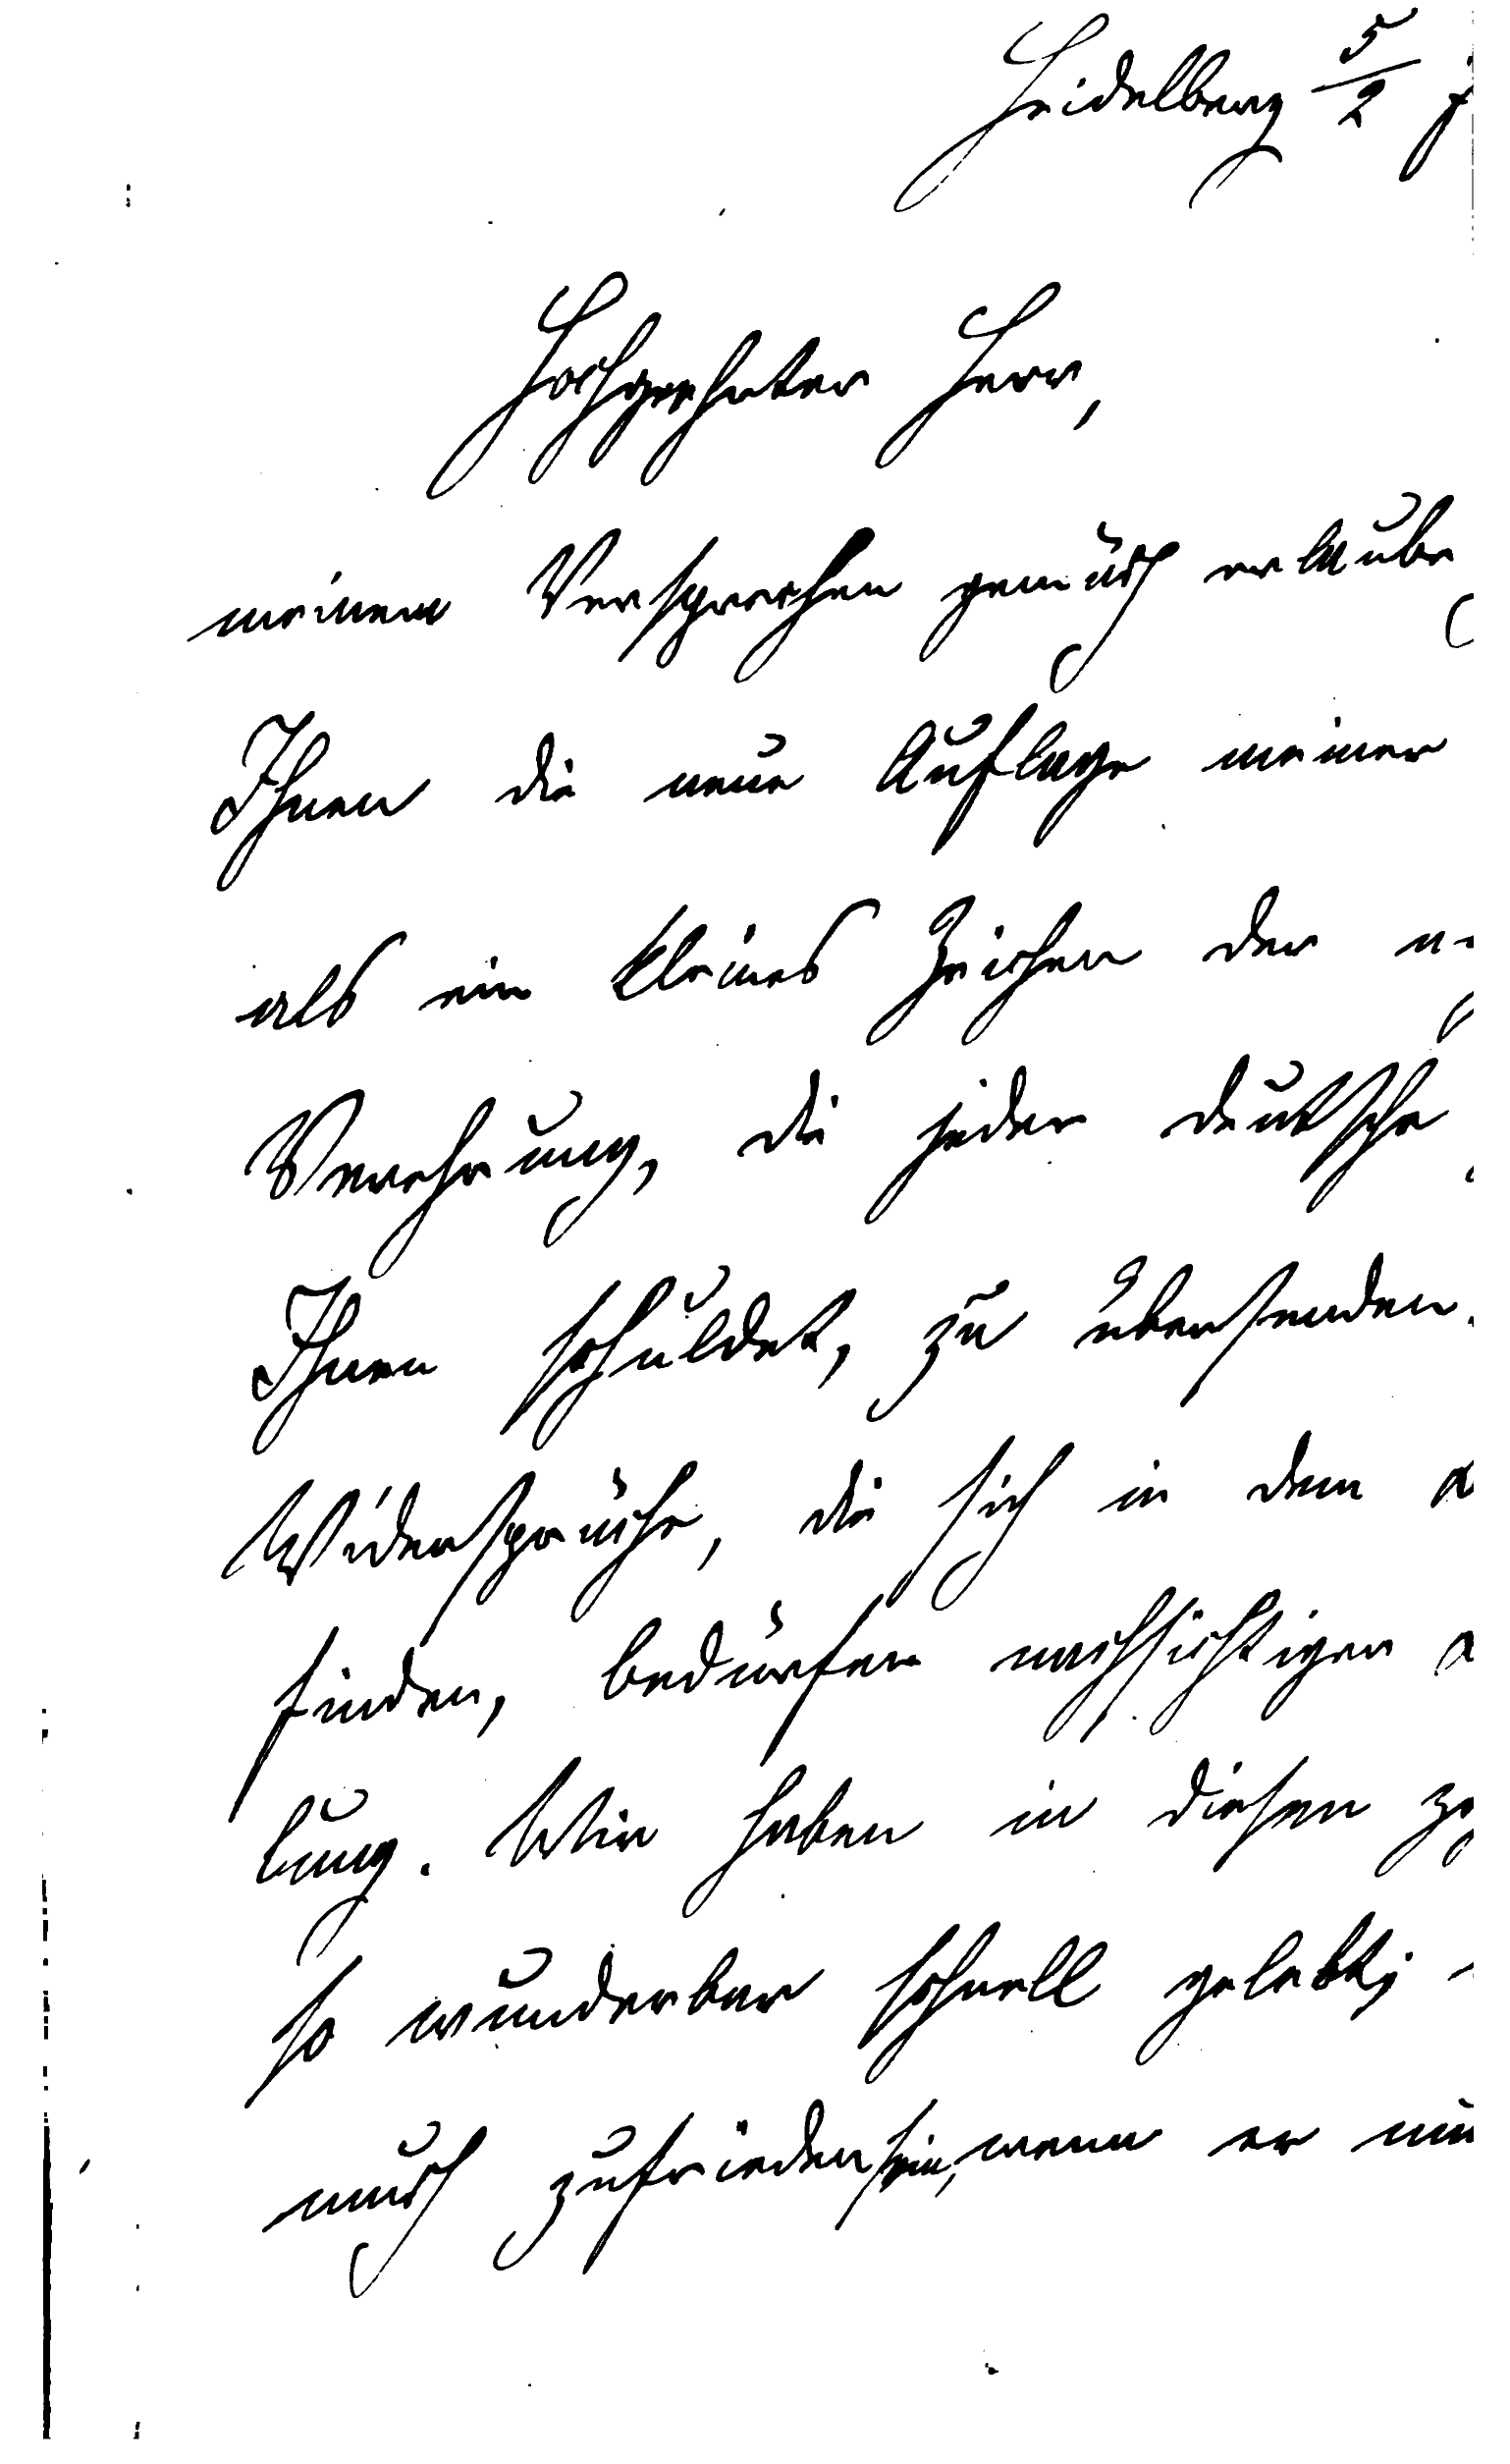 Heidelberg 5/2
Hochgeehrter Herr,
meinem Versprechen gemäß erlaube
Ihnen die neue Auflage meiner
als ein kleines Zeichen der
Verehrung, die jeder deutsche
Ihnen schuldet, zu übersenden.
Widersprüche, die sich in dem
finden, bedürfen nachsichtiger
lung. Wir haben in diesen
so wunderbar schnell gelebt;
muß zufrieden sein, wenn er